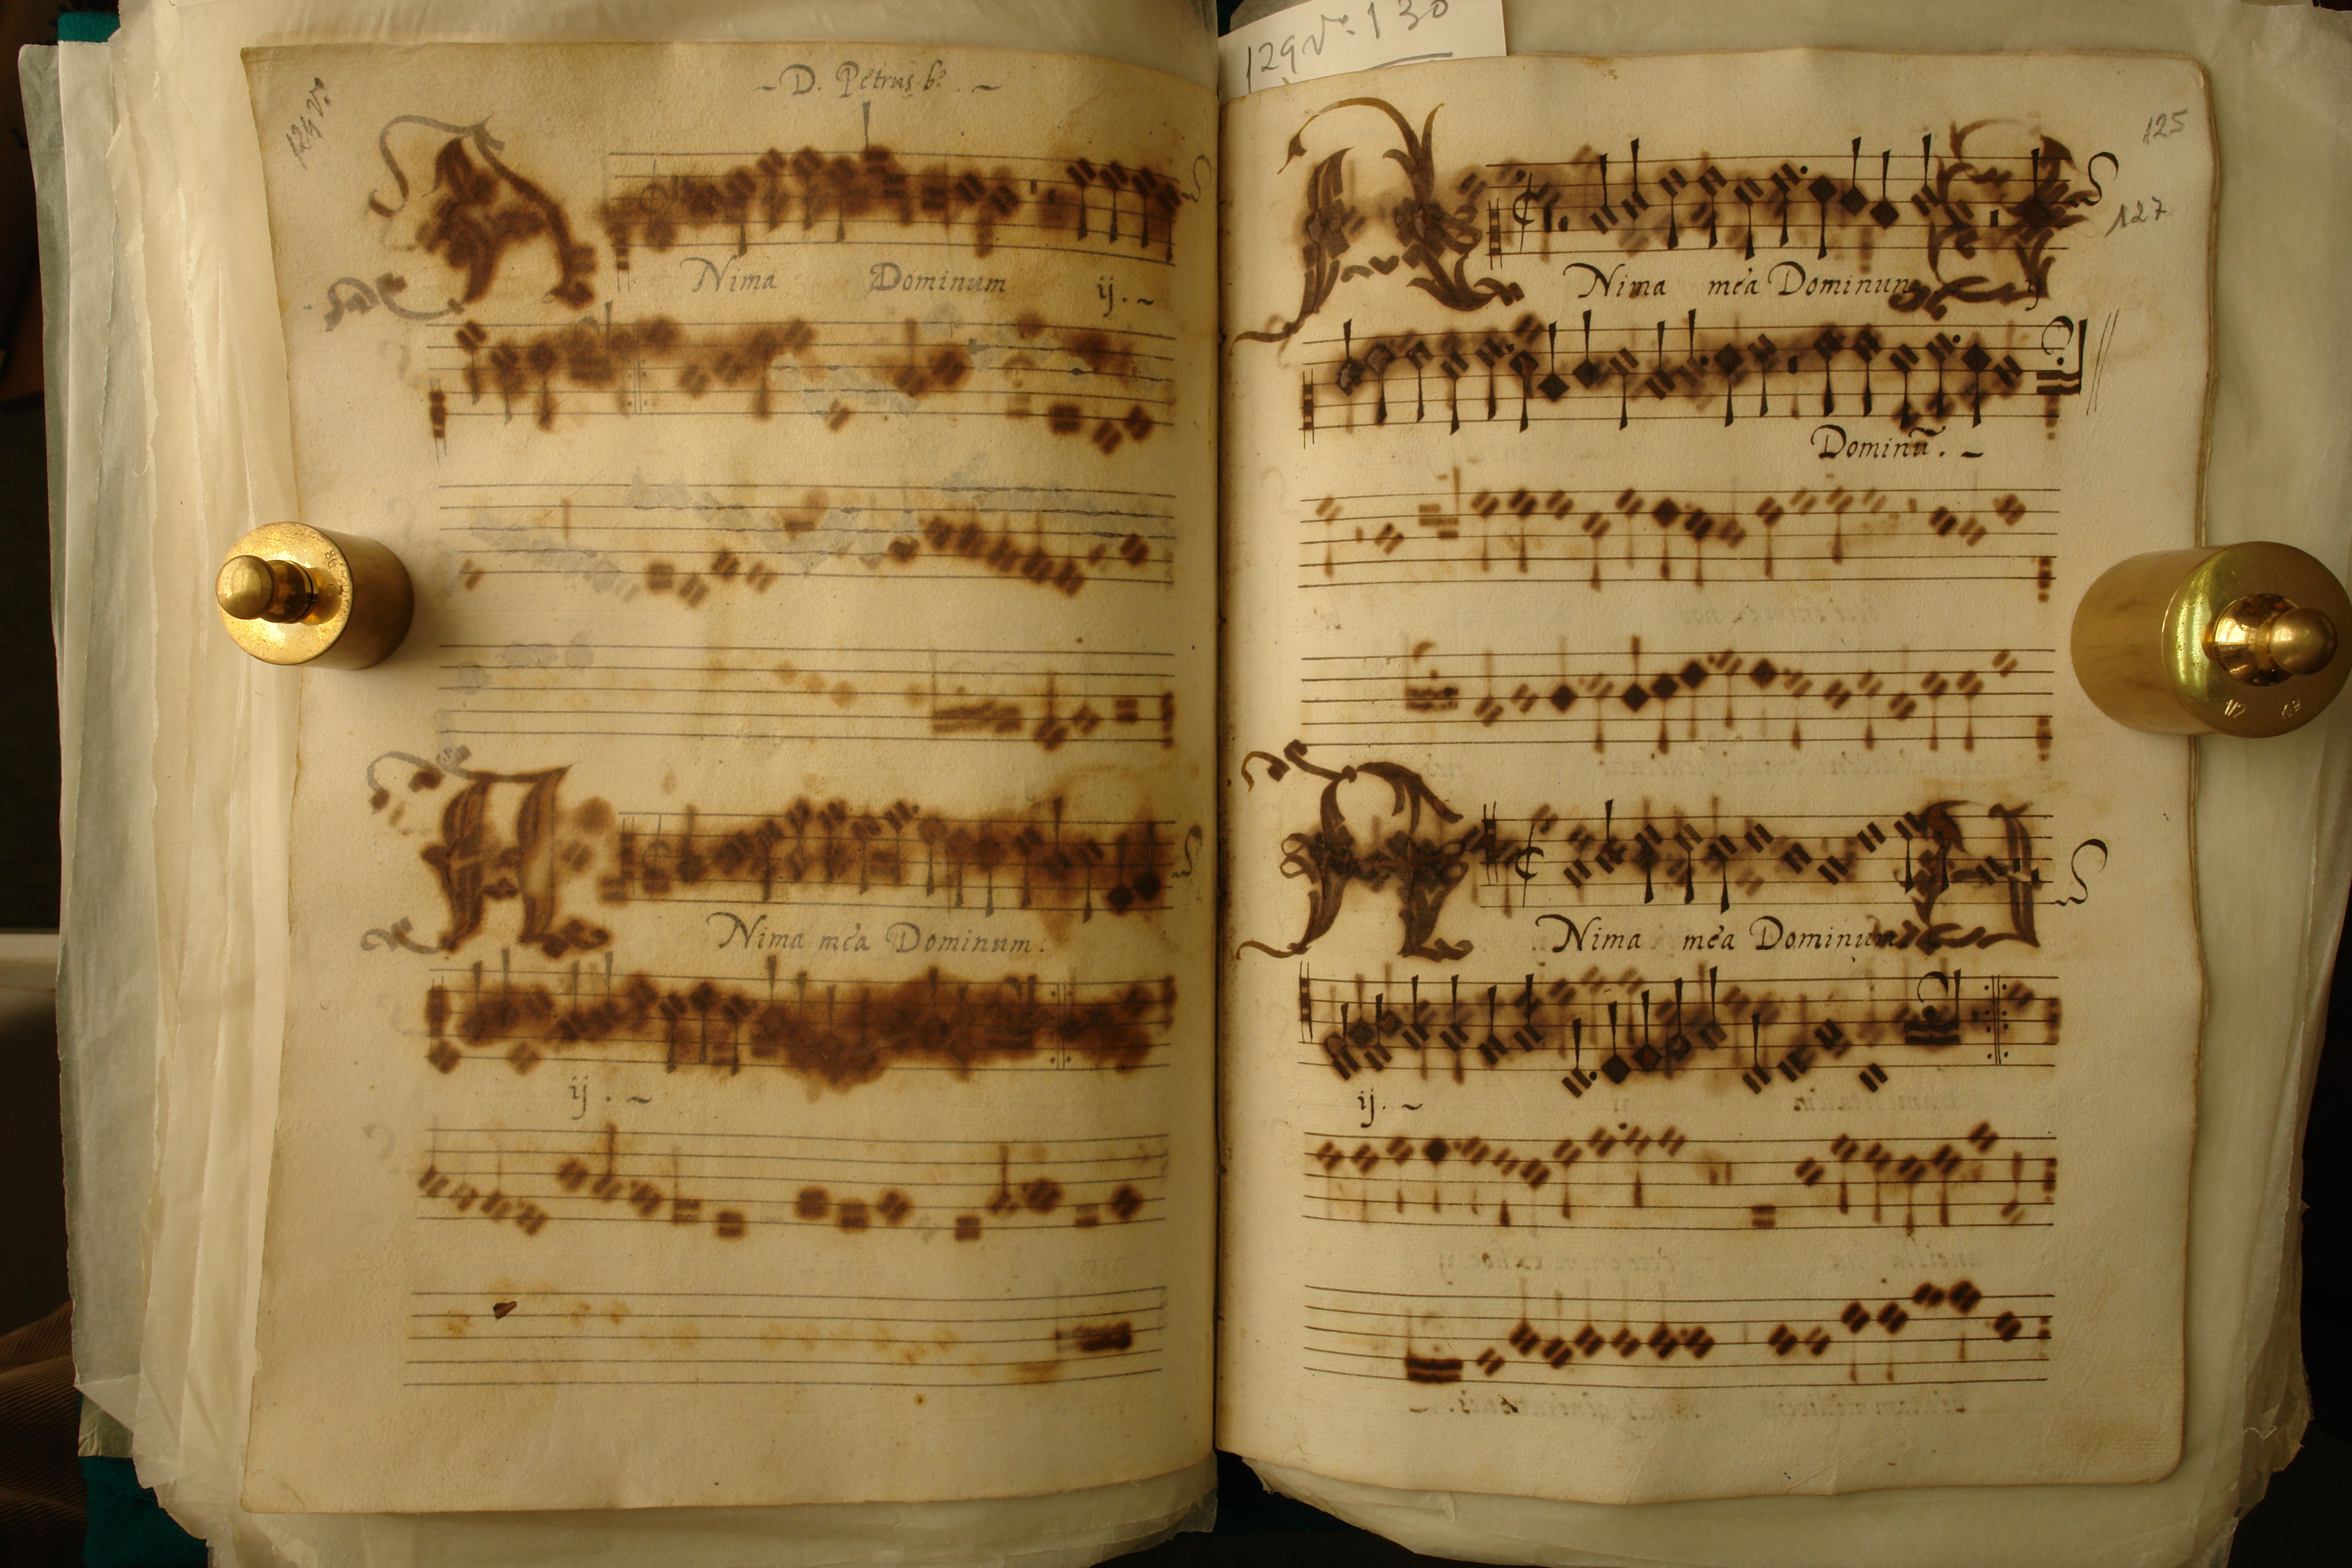 129 vº 130
129 vº
- D. Petrus bº. -
A Nima Dominum ij. ~
A Nima mea Dominum.
ij. ~
125
127
A Nima mea Dominum ij
Dominũ. ~
A Nima mea Dominum
ij. ~